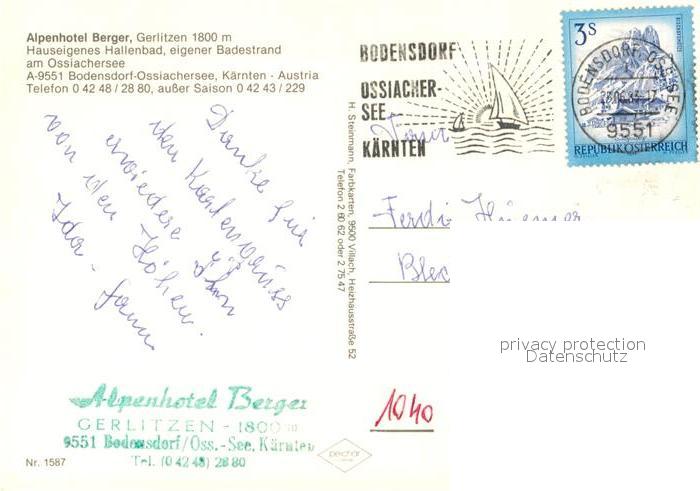 Alpenhotel Berger, Gerlitzen 1800 m
Hauseigenes Hallenbad, eigener Badestrand
am Ossiachersee
A-9551 Bodensdorf-Ossiachersee, Kärnten - Austria
Telefon 0 42 48 / 28 80, außer Saison 0 42 43 / 229
BODENSDORF
OSSIACHER-
SEE
KÄRNTEN
3S
BODENSDORF, OSS.-SEE
9551
REPUBLIK ÖSTERREICH
Danke für
den Kartengruss
erwiedere ihn
von den Höhen.
H. Steinmann, Farbkarten, 9500 Villach, Heizhausstraße 52
Telefon 2 60 62 oder 2 75 47
Ferdi
privacy protection
Datenschutz
1040
Alpenhotel Berger
GERLITZEN - 1800 m
9551 Bodensdorf/Oss.-See, Kärnten
Tel. (0 42 48) 28 80
Nr. 1587